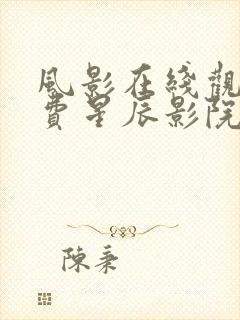 風影在綫觀
費星辰影院
陳秉